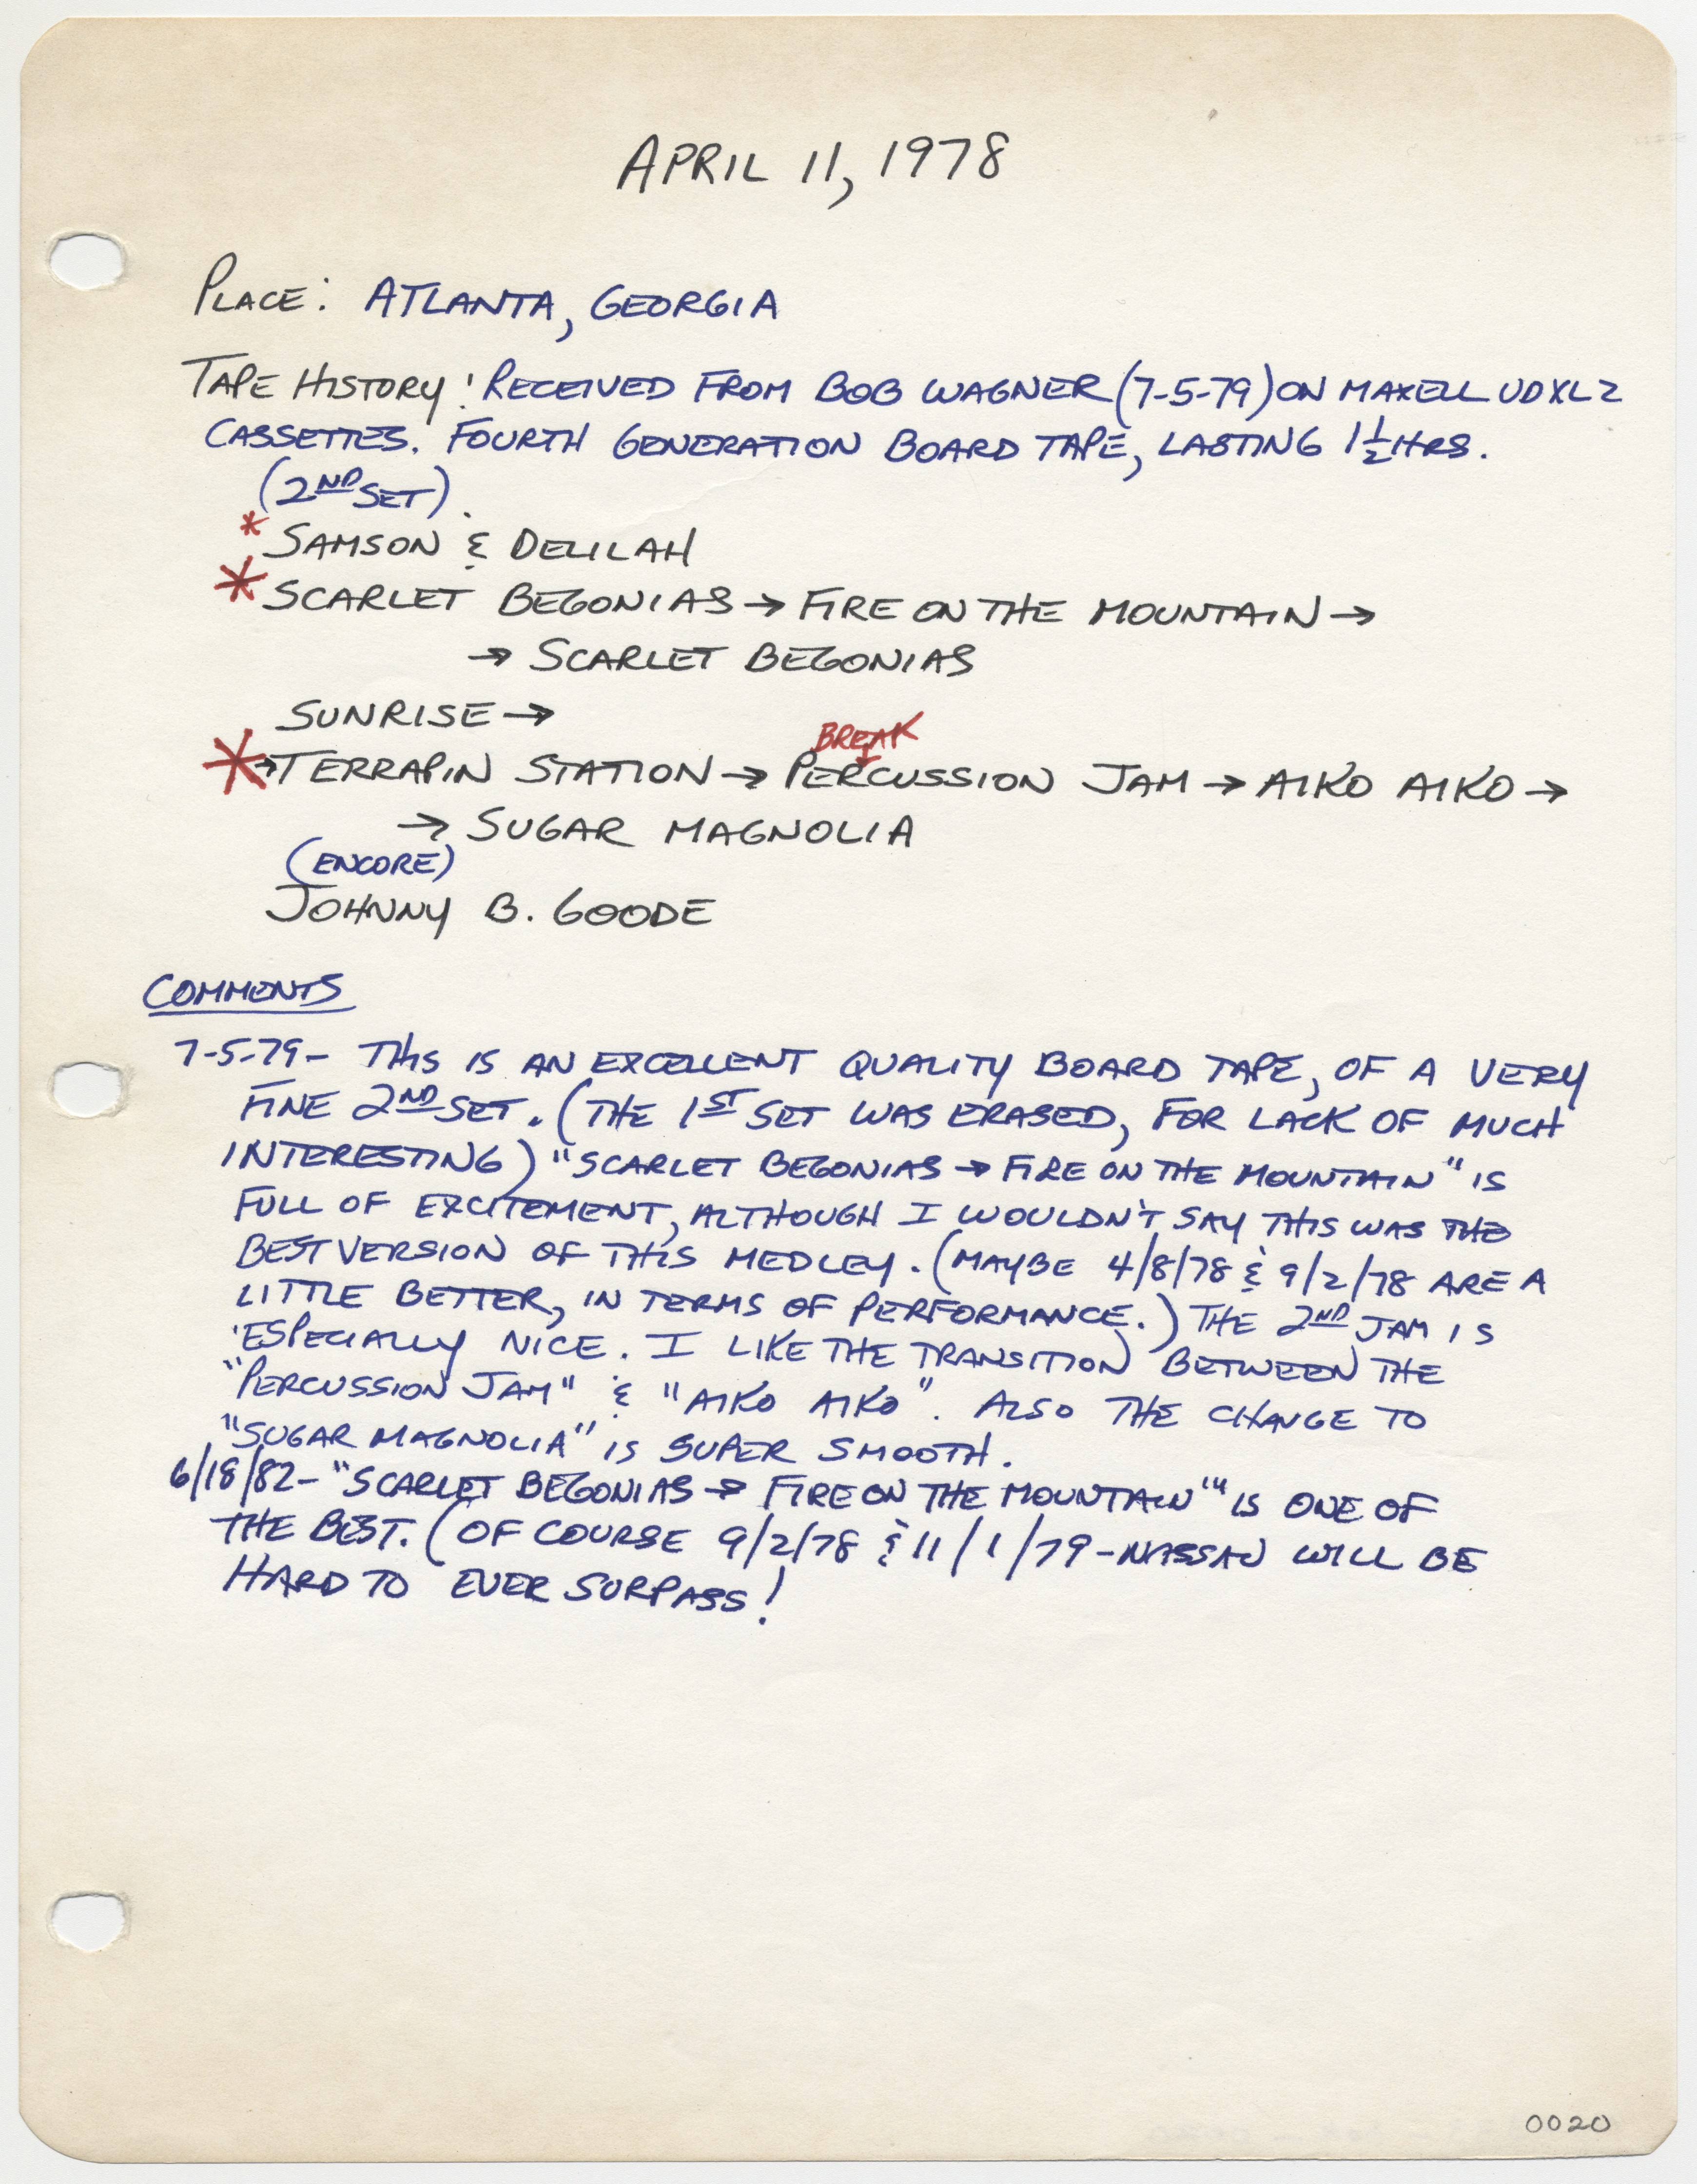 APRIL 11, 1978
PLACE: ATLANTA, GEORGIA
TAPE HISTORY: RECEIVED FROM BOB WAGNER (7-5-79) ON MAXELL UDXL2
CASSETTES. FOURTH GENERATION BOARD TAPE, LASTING 1½ HRS.
(2ND SET).
* SAMSON & DELILAH
* SCARLET BEGONIAS → FIRE ON THE MOUNTAIN →
→ SCARLET BEGONIAS
SUNRISE →
BREAK
* → TERRAPIN STATION → PERCUSSION JAM → AIKO AIKO →
→ SUGAR MAGNOLIA
(ENCORE)
JOHNNY B. GOODE
COMMENTS
7-5-79- THIS IS AN EXCELLENT QUALITY BOARD TAPE, OF A VERY
FINE 2ND SET. (THE 1ST SET WAS ERASED, FOR LACK OF MUCH
INTERESTING) "SCARLET BEGONIAS → FIRE ON THE MOUNTAIN" IS
FULL OF EXCITEMENT, ALTHOUGH I WOULDN'T SAY THIS WAS THE
BEST VERSION OF THIS MEDLEY. (MAYBE 4/8/78 & 9/2/78 ARE A
LITTLE BETTER, IN TERMS OF PERFORMANCE.) THE 2ND JAM IS
ESPECIALLY NICE. I LIKE THE TRANSITION BETWEEN THE
"PERCUSSION JAM" & "AIKO AIKO". ALSO THE CHANGE TO
"SUGAR MAGNOLIA" IS SUPER SMOOTH.
6/18/82- "SCARLET BEGONIAS → FIRE ON THE MOUNTAIN"" IS ONE OF
THE BEST. (OF COURSE 9/2/78 & 11/1/79-NASSAU WILL BE
HARD TO EVER SURPASS!
0020